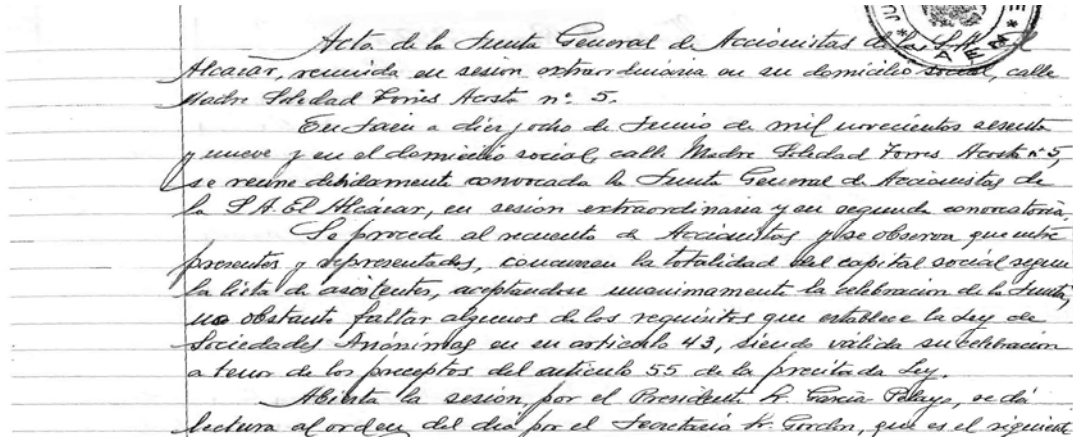 Acta de la Junta General de Accionistas de la S.A. El
Alcázar, reunida en sesion extraordinaria en su domicilio social, calle
Madre Soledad Torres Acosta nº 5.
En Jaén a diez y ocho de Junio de mil novecientos sesenta
y nueve y en el domicilio social, calle Madre Soledad Torres Acosta nº 5,
se reune debidamente convocada la Junta General de Accionistas de
la S.A. El Alcázar, en sesion extraordinaria y en segunda convocatoria.
Se procede al recuento de Accionistas y se observa que entre
presentes y representados, concurren la totalidad del capital social segun
la lista de asistentes, aceptandose unanimamente la celebracion de la Junta,
no obstante faltar algunos de los requisitos que establece la Ley de
Sociedades Anónimas en su articulo 43, siendo válida su celebracion
a tenor de los preceptos del articulo 55 de la precitada Ley.
Abierta la sesion, por el Presidente Sr. Garcia-Pelayo, se dá
lectura al orden del dia por el Secretario Sr. Gordon, que es el siguiente
JAEN